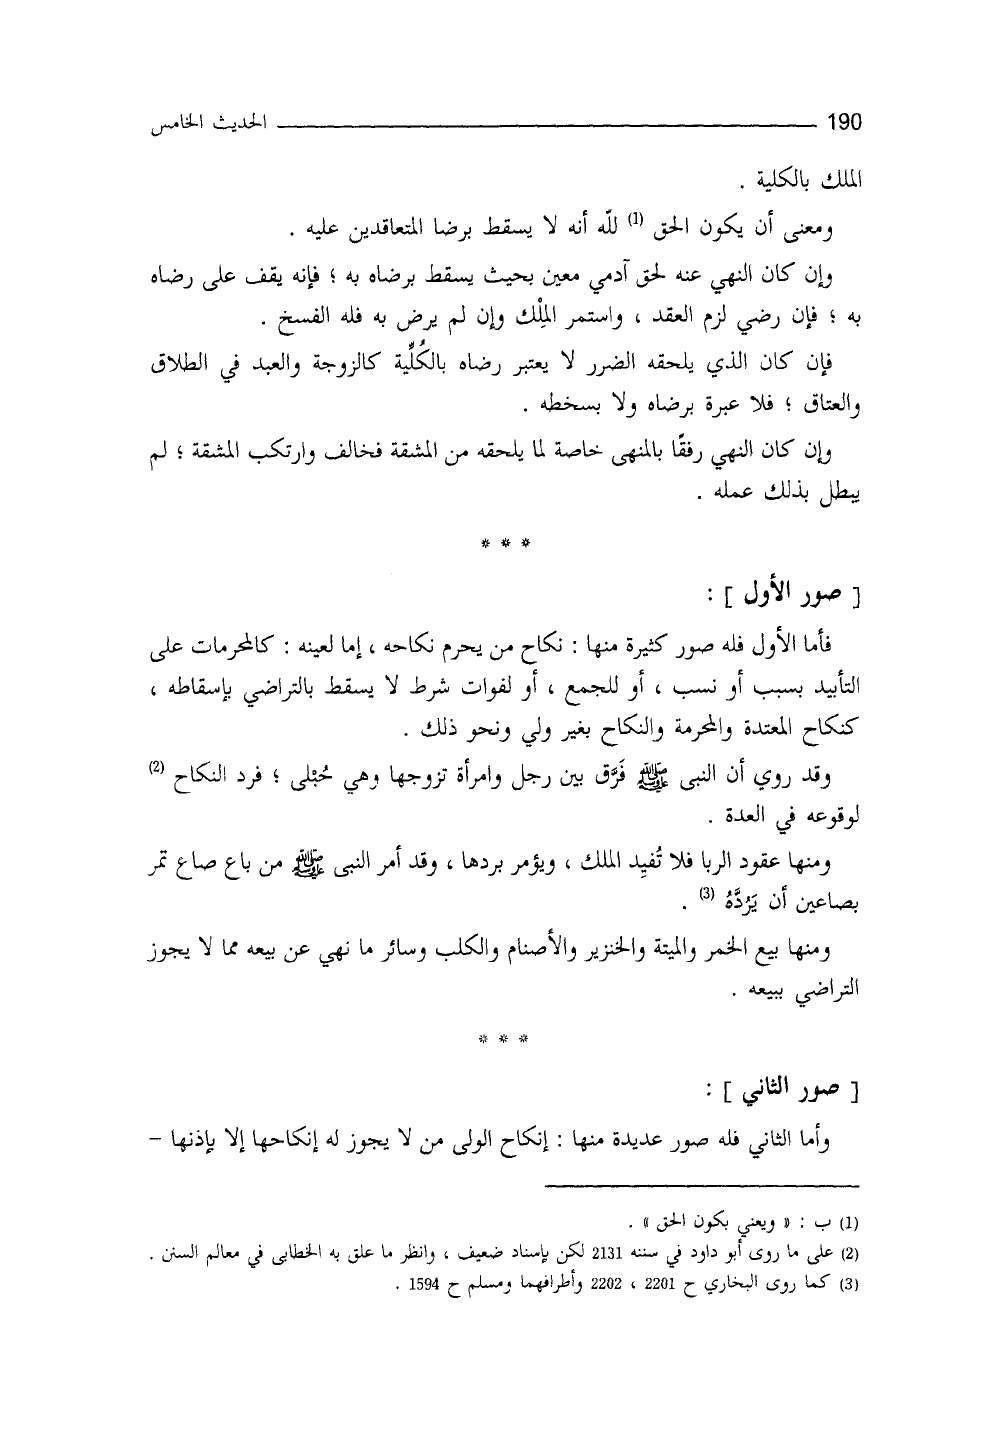 190 الحديث الخامس
الملك بالكلية .
ومعنى أن يكون الحق (1) للّه أنه لا يسقط برضا المتعاقدين عليه .
وإن كان النهي عنه لحق آدمي معين بحيث يسقط برضاه به ؛ فإنه يقف على رضاه
به ؛ فإن رضي لزم العقد ، واستمر المِلْك وإن لم يرض به فله الفسخ .
فإن كان الذي يلحقه الضرر لا يعتبر رضاه بالكُلِّية كالزوجة والعبد في الطلاق
والعتاق ؛ فلا عبرة برضاه ولا بسخطه .
وإن كان النهي رفقًا بالمنهى خاصة لما يلحقه من المشقة فخالف وارتكب المشقة ؛ لم
يبطل بذلك عمله .
* * *
[ صور الأول ] :
فأما الأول فله صور كثيرة منها : نكاح من يحرم نكاحه ، إما لعينه : كالمحرمات على
التأبيد بسبب أو نسب ، أو للجمع ، أو لفوات شرط لا يسقط بالتراضي بإسقاطه ،
كنكاح المعتدة والمحرمة والنكاح بغير ولي ونحو ذلك .
وقد روي أن النبى ﷺ فَرَّق بين رجل وامرأة تزوجها وهي حُبْلى ؛ فرد النكاح (2)
لوقوعه في العدة .
ومنها عقود الربا فلا تُفيِد الملك ، ويؤمر بردها ، وقد أمر النبى ﷺ من باع صاع تمر
بصاعين أن يَرُدَّهُ (3) .
ومنها بيع الخمر والميتة والخنزير والأصنام والكلب وسائر ما نهي عن بيعه مما لا يجوز
التراضي ببيعه .
* * *
[ صور الثاني ] :
وأما الثاني فله صور عديدة منها : إنكاح الولى من لا يجوز له إنكاحها إلا بإذنها –
(1) ب : « ويعني بكون الحق » .
(2) على ما روى أبو داود في سننه 2131 لكن بإسناد ضعيف ، وانظر ما علق به الخطابى في معالم السنن .
(3) كما روى البخاري ح 2201 ، 2202 وأطرافهما ومسلم ح 1594 .